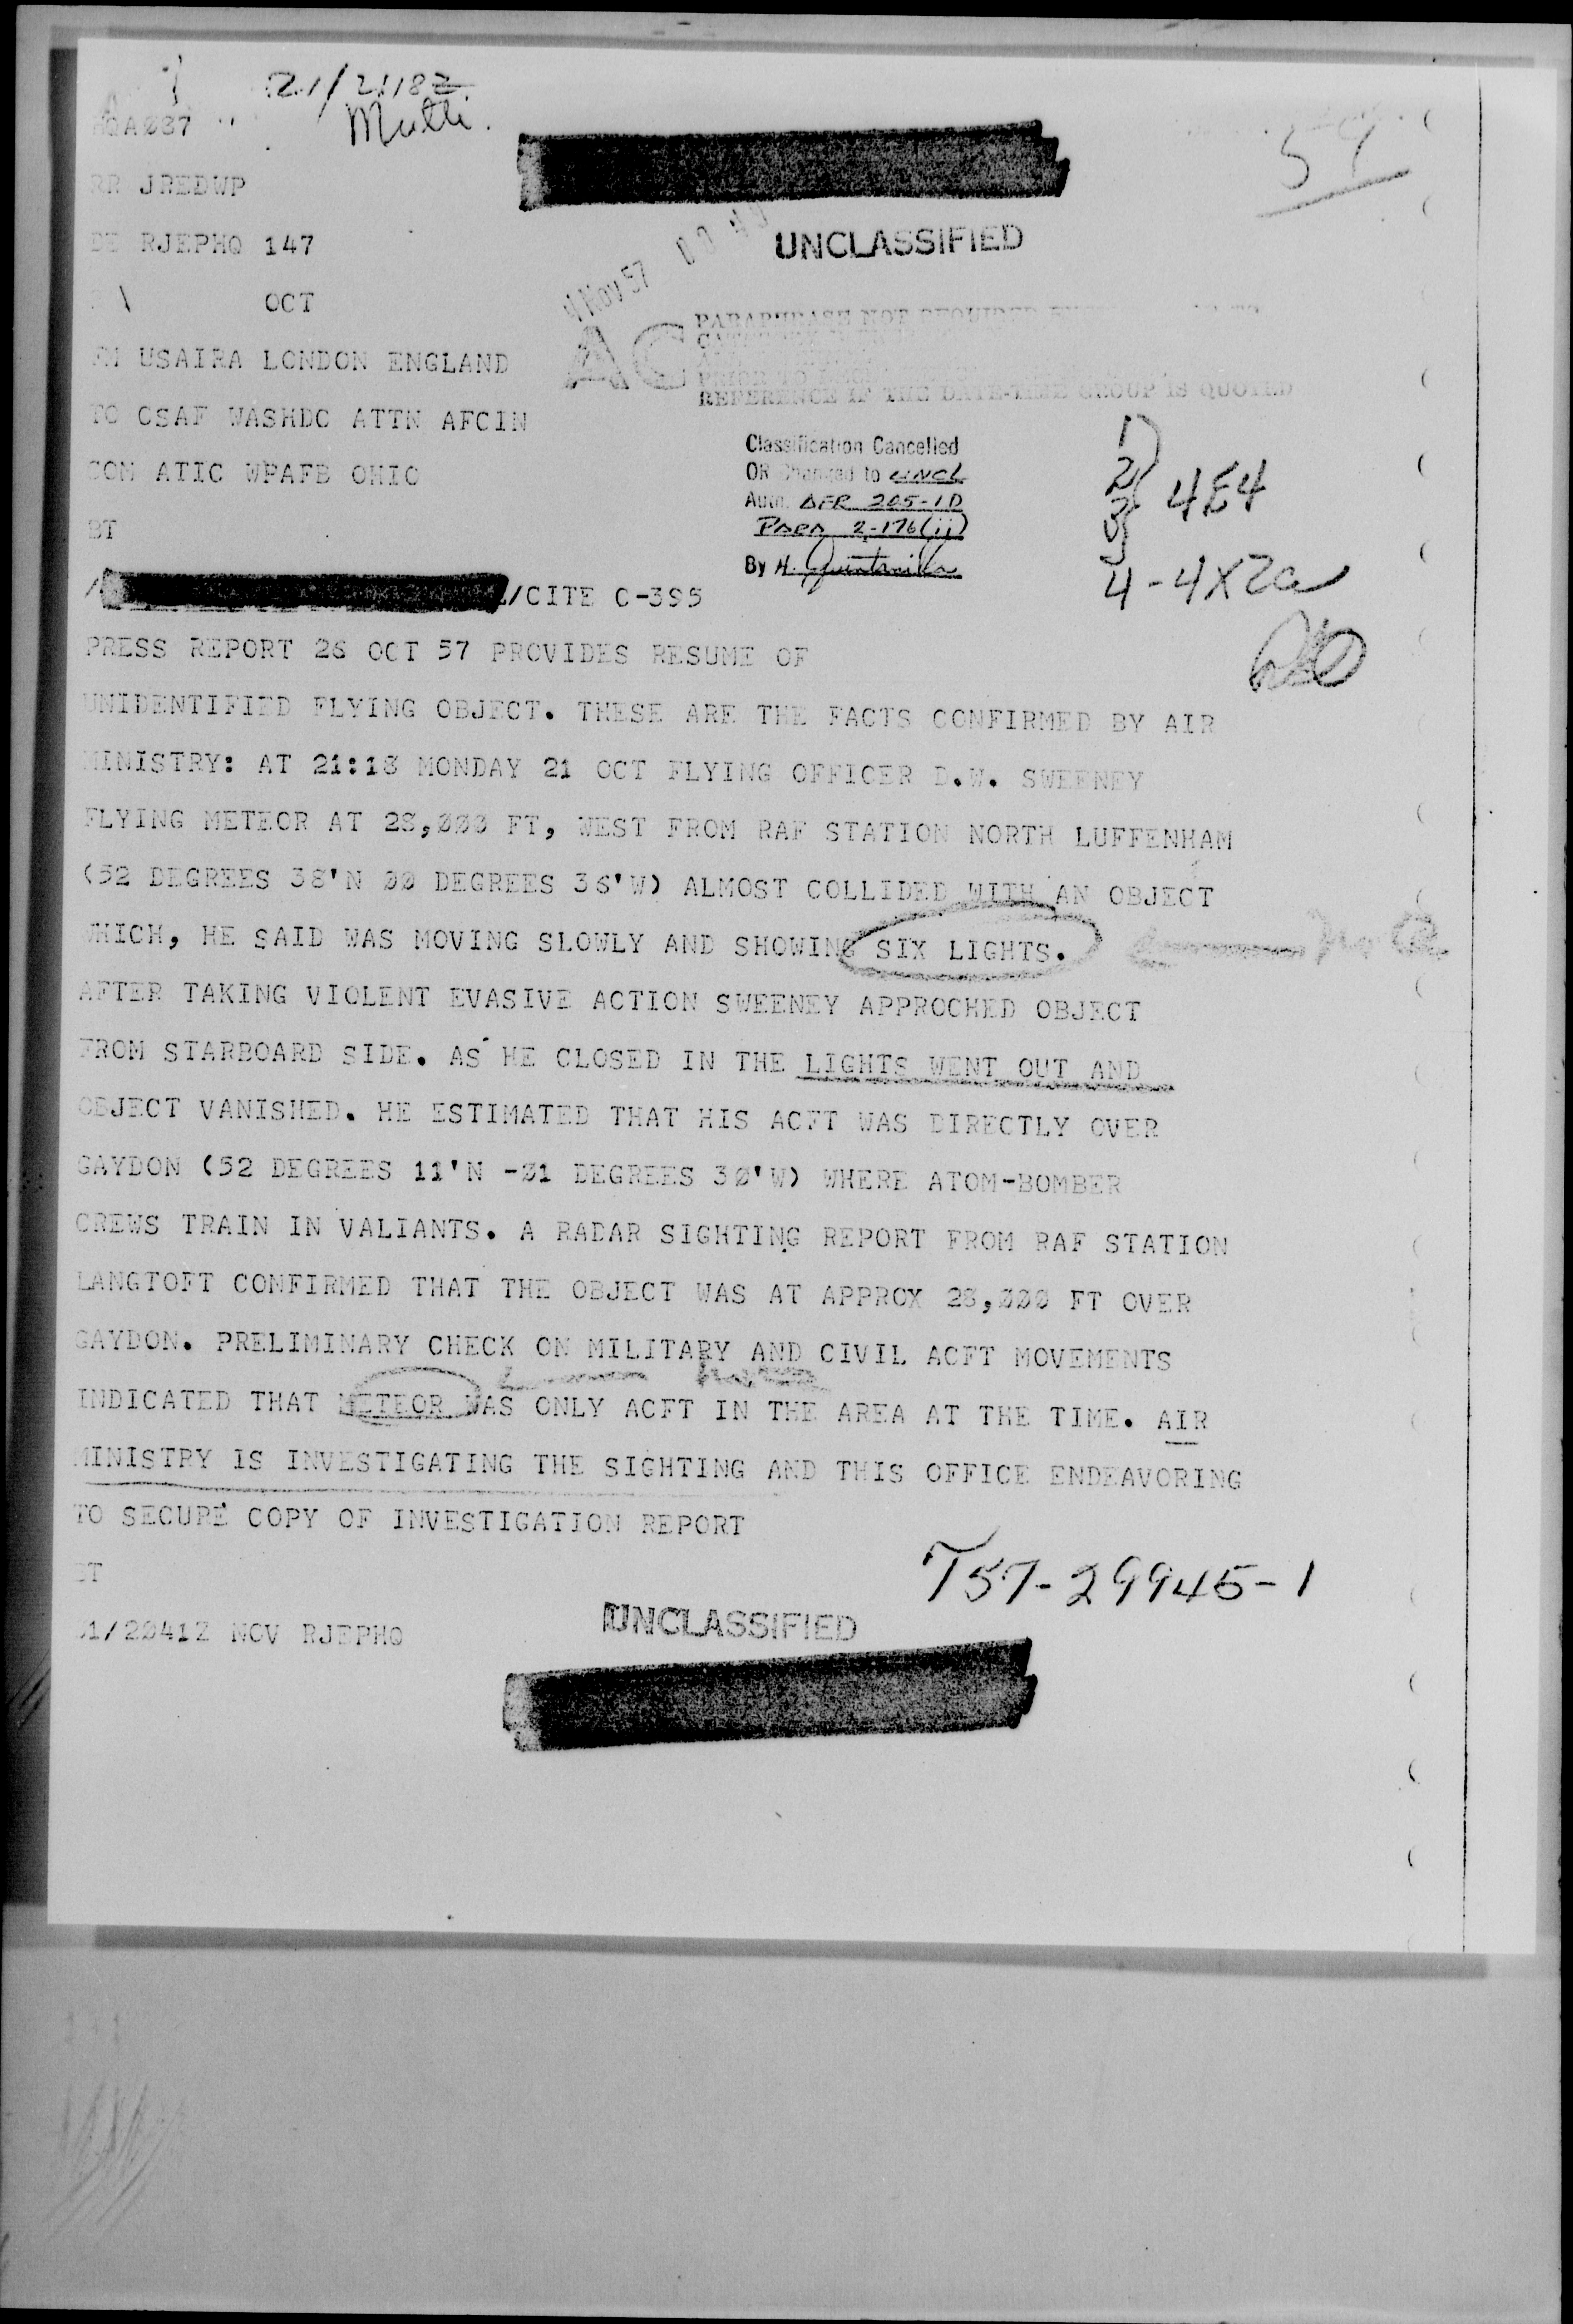 21/2118Z
Multi.
QA087
RR JREDWP
54
DE RJEPHQ 147
UNCLASSIFIED
4 NOV 57
OCT
PARAPHRASE NOT REQUIRED
AC
FM USAIRA LONDON ENGLAND
PRIOR TO
REFERENCE IF THE DATE-TIME GROUP IS QUOTED
TO CSAF WASHDC ATTN AFCIN
COM ATIC WPAFB OHIO
Classification Cancelled
OR Changed to UNCL
Auth. AFR 205-1D
PARA 2-176(ii)
By H. Quintanilla
1)
2) 4E4
3)
4-4X2a
BT
/CITE C-395
PRESS REPORT 26 OCT 57 PROVIDES RESUME OF
UNIDENTIFIED FLYING OBJECT. THESE ARE THE FACTS CONFIRMED BY AIR
MINISTRY: AT 21:18 MONDAY 21 OCT FLYING OFFICER D.W. SWEENEY
FLYING METEOR AT 28,000 FT, WEST FROM RAF STATION NORTH LUFFENHAM
(52 DEGREES 38'N 00 DEGREES 36'W) ALMOST COLLIDED WITH AN OBJECT
WHICH, HE SAID WAS MOVING SLOWLY AND SHOWING SIX LIGHTS.
AFTER TAKING VIOLENT EVASIVE ACTION SWEENEY APPROCHED OBJECT
FROM STARBOARD SIDE. AS HE CLOSED IN THE LIGHTS WENT OUT AND
OBJECT VANISHED. HE ESTIMATED THAT HIS ACFT WAS DIRECTLY OVER
GAYDON (52 DEGREES 11'N -01 DEGREES 30'W) WHERE ATOM-BOMBER
CREWS TRAIN IN VALIANTS. A RADAR SIGHTING REPORT FROM RAF STATION
LANGTOFT CONFIRMED THAT THE OBJECT WAS AT APPROX 28,000 FT OVER
GAYDON. PRELIMINARY CHECK ON MILITARY AND CIVIL ACFT MOVEMENTS
INDICATED THAT METEOR WAS ONLY ACFT IN THE AREA AT THE TIME. AIR
MINISTRY IS INVESTIGATING THE SIGHTING AND THIS OFFICE ENDEAVORING
TO SECURE COPY OF INVESTIGATION REPORT
BT
T57-29945-1
01/2041Z NOV RJEPHQ
UNCLASSIFIED